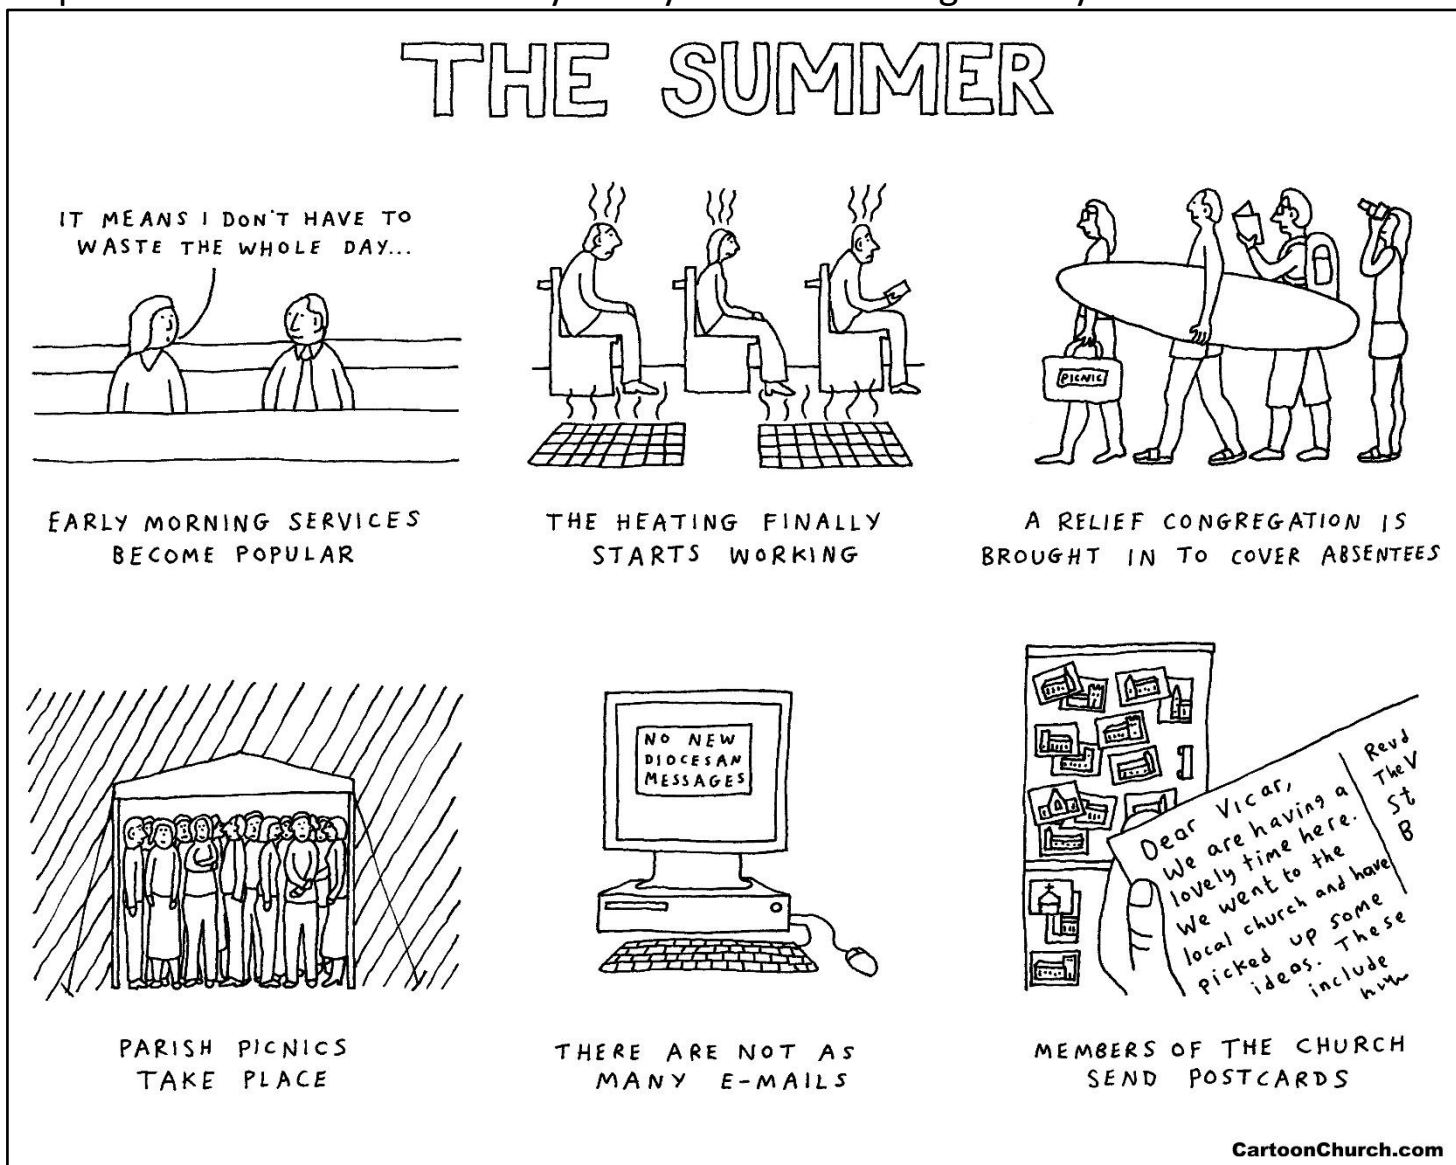 THE SUMMER
IT MEANS I DON'T HAVE TO
WASTE THE WHOLE DAY...
EARLY MORNING SERVICES
BECOME POPULAR
THE HEATING FINALLY
STARTS WORKING
PICNIC
A RELIEF CONGREGATION IS
BROUGHT IN TO COVER ABSENTEES
PARISH PICNICS
TAKE PLACE
NO NEW
DIOCESAN
MESSAGES
THERE ARE NOT AS
MANY E-MAILS
Dear Vicar,
We are having a
lovely time here.
We went to the
local church and have
picked up some
ideas. These
include
Revd
The V
St
B
MEMBERS OF THE CHURCH
SEND POSTCARDS
CartoonChurch.com